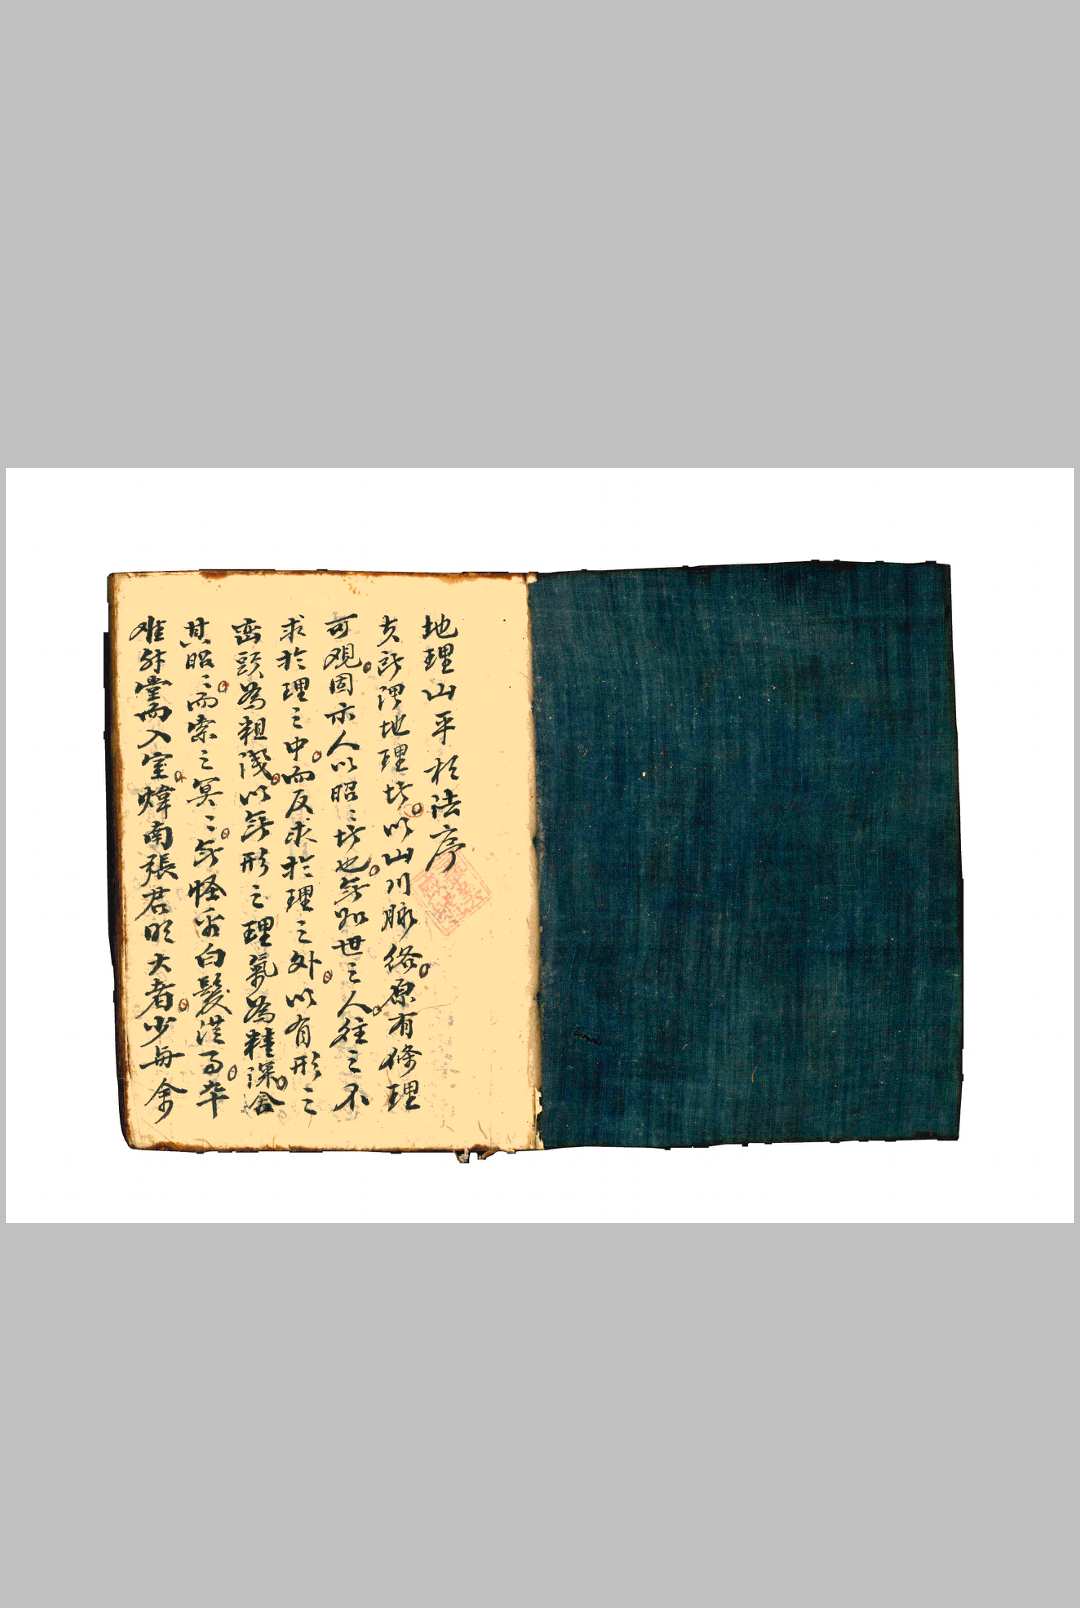 地理山平枕法序
夫所謂地理者以山川脉络原有條理
可观固示人以昭〻者也無如世之人往〻不
求於理之中而反求於理之外以有形之
峦頭為粗淺以無形之理氣為精深舍
其昭〻而索之冥〻無怪乎白髮迷而卒
难升堂而入室煒南張君大者少年余